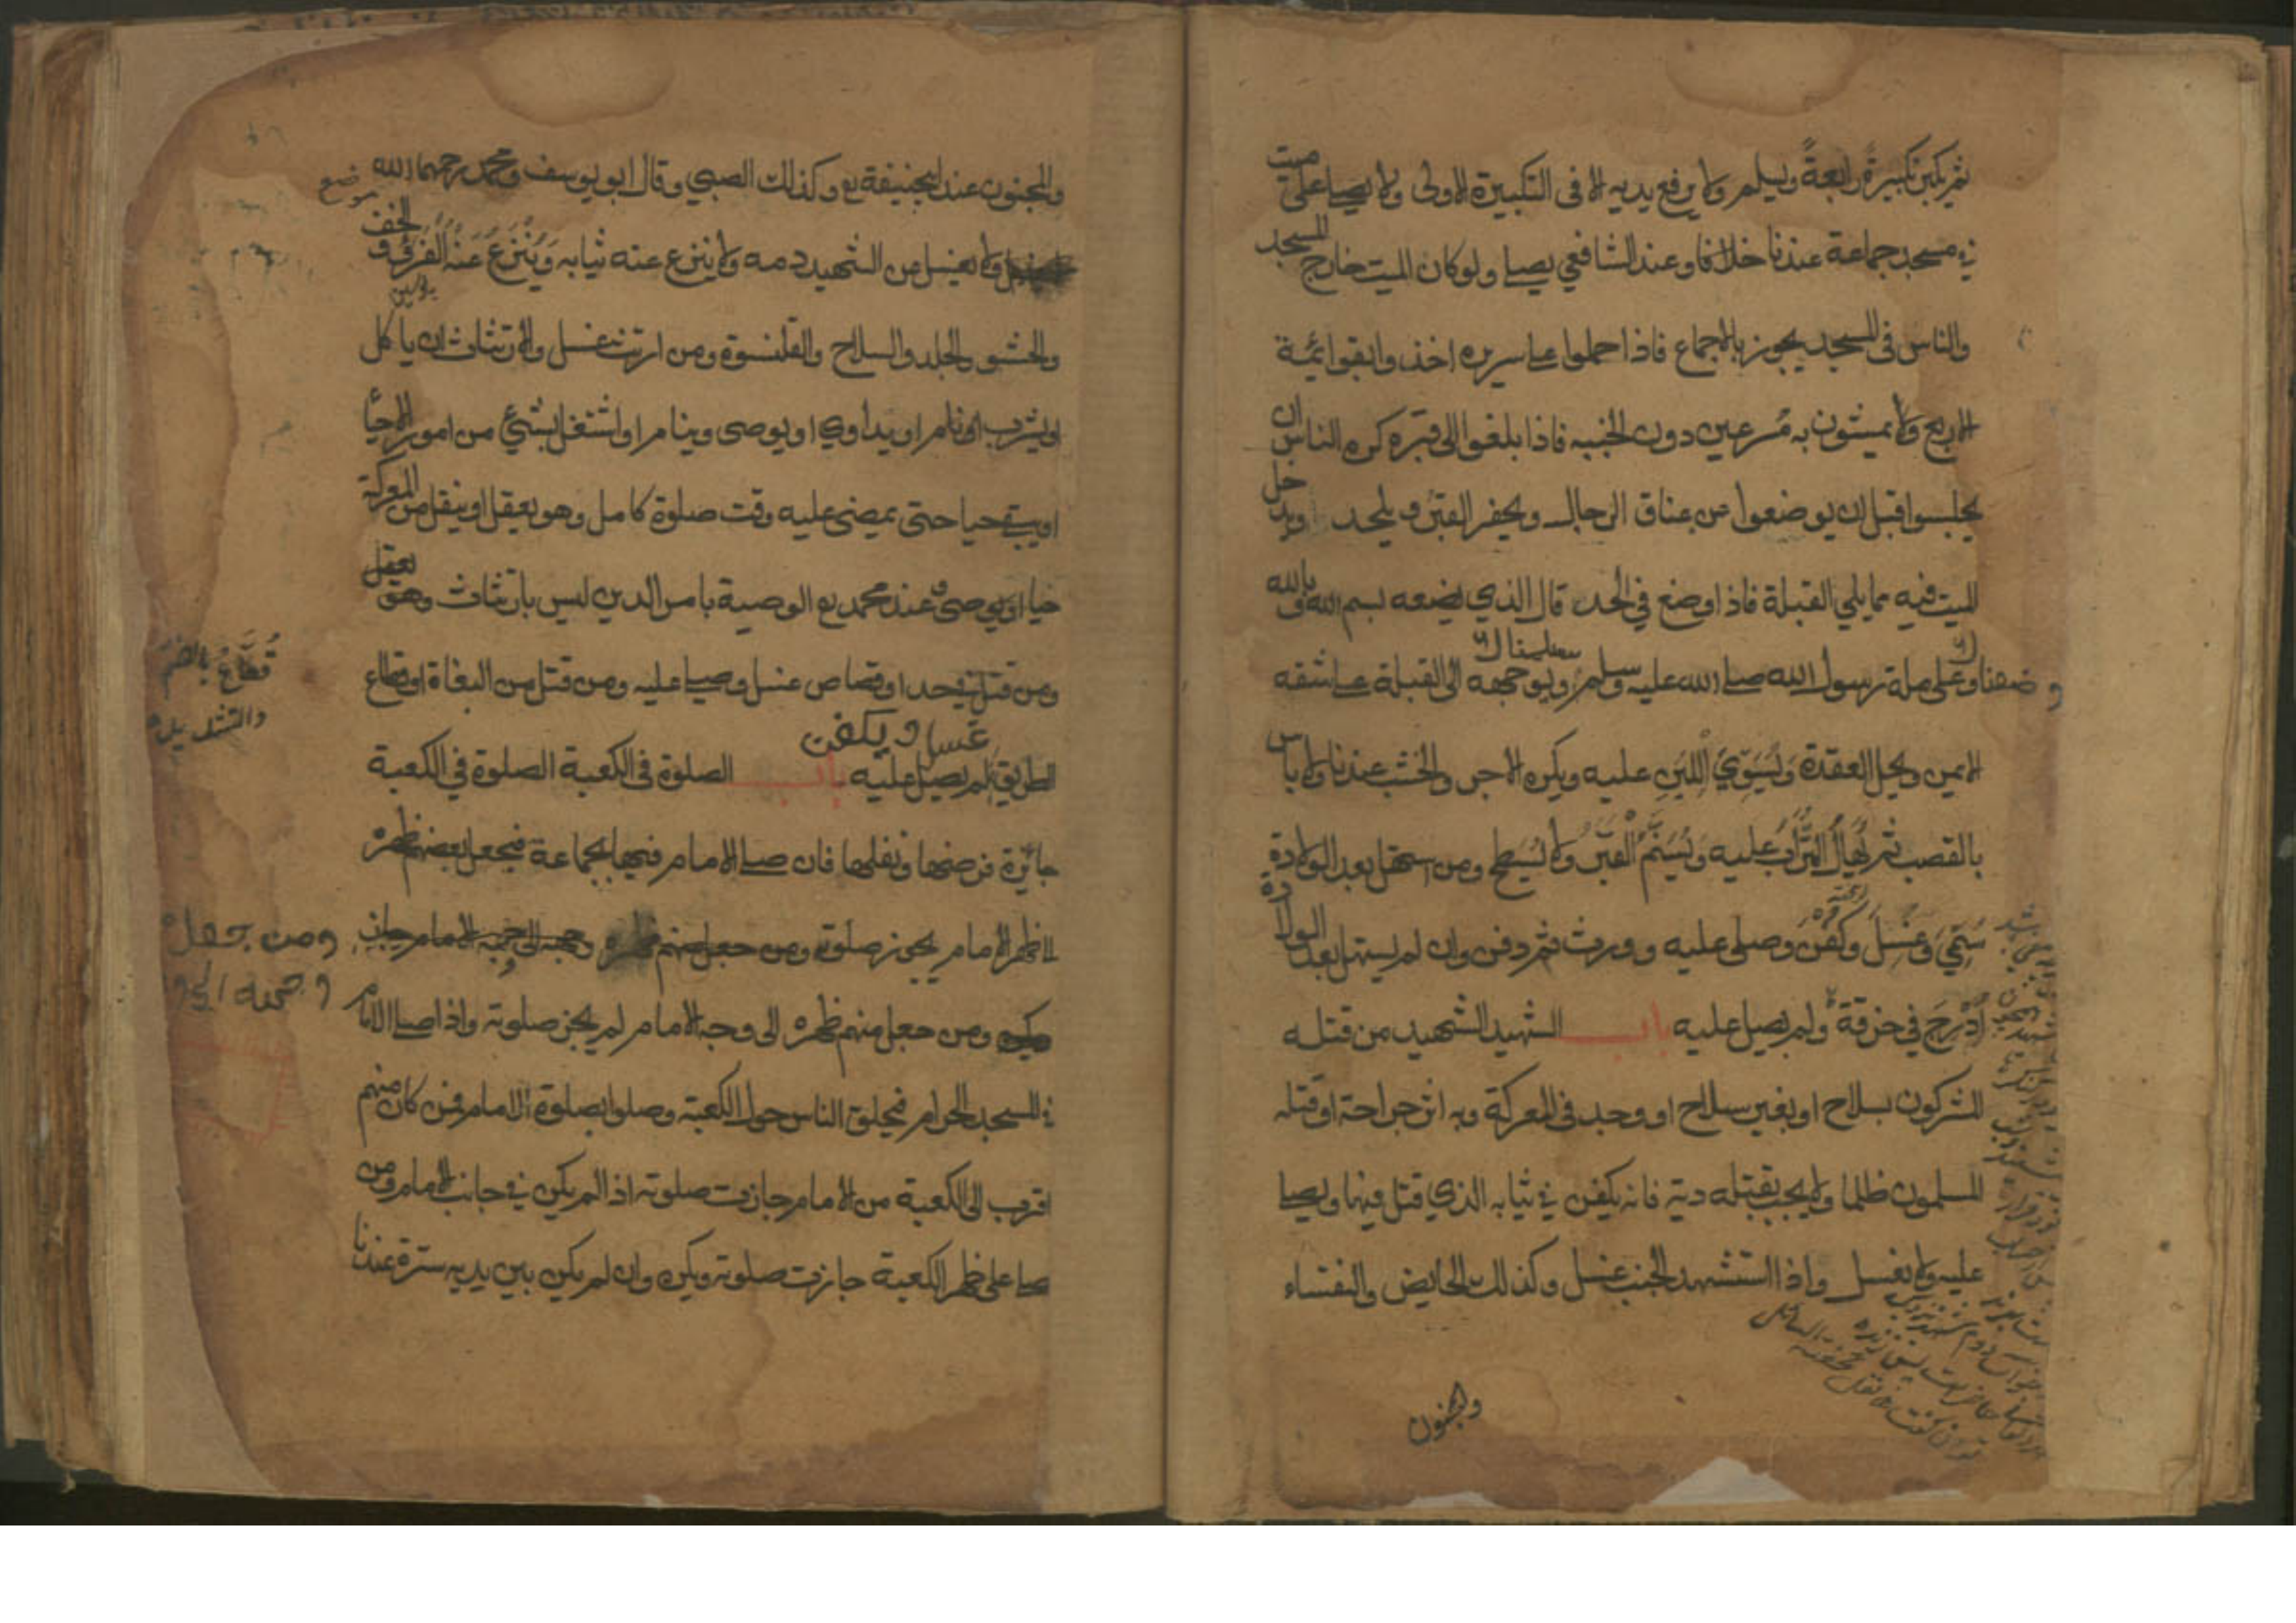 ثم يكبر تكبيرة رابعة ويسلم ولا يرفع يديه الا فى التكبيرة الاولى ولا يصلى على ميت
في مسجد جماعة عندنا خلافا وعند الشافعي يصلى ولو كان الميت خارج المسجد
والناس فى المسجد يجوز بالاجماع فاذا حملوا على سريره اخذوا بقوائمة
الاربع ولا يمشون به مسرعين دون الخبب فاذا بلغوا الى قبره كره الناس ان
يجلسوا قبل ان يوضعوا عن عناق الرجال ويحفر القبر ويلحد ويدخل
الميت فيه مما يلي القبلة فاذا وضع في الحد قال الذي يضعه بسم الله وبالله
وضعناك وعلى ملة رسول الله صلى الله عليه وسلم سلمناك ويوجهه الى القبلة على شقه
الايمن ويحل العقدة وَيُسَوّي اللَّبِن عليه ويكره الاجر والخشب عندنا ولا باس
بالقصب ثم يُهَالُ التُّرَابُ عليه وَيُسَنَّمُ الْقَبْرُ ولا يُسَطح ومن استهل بعد الولادة
سُمِّيَ وَغُسِلَ وَكُفِّنَ وصلى عليه وورث ثم دفن وان لم يستهل بعد الولادة
اُدْرِجَ في خرقة ولم يصل عليه باب الشهيد الشهيد من قتله
المشركون بسلاح او بغير سلاح او وجد فى المعركة وبه اثر جراحة او قتله
المسلمون ظلما ولا يجب بقتله دية فانه يكفن في ثيابه الذي قتل فيها ويصلى
عليه ولا يغسل واذا استشهد الجنب غسل وكذلك الحايض والنفساء
والمجنون
والمجنون عند ابيحنيفة رح وكذلك الصبي وقال ابو يوسف ومحمد رحمهما الله
ولا يغسل عن الشهيد دمه ولا ينزع عنه ثيابه وَيُنْزَعُ عَنْهُ الْفَرْو والخف
والحشو والجلد والسلاح والقلنسوة ومن ارتث غسل والارتثاث ان ياكل
او يشرب او نام او يداوي او يوصى وينام او اشتغل بشئ من امور الاحيا
او يبقى حيا حتى يمضى عليه وقت صلوة كامل وهو يعقل او ينقل من المعركة
حيا او يوصى وعند محمد رح الوصية بامر الدين ليس بارتثاث وهو يعقل
ومن قتل في حد او قصاص غسل وصلى عليه ومن قتل من البغاة او قطاع
غسل ويكفن
الطريق لم يصل عليه باب الصلوة فى الكعبة الصلوة في الكعبة
جائزة فرضها ونفلها فان صلى الامام فيها بجماعة فجعل بعضهم ظهره
الى ظهر الامام يجوز صلوته ومن جعل منهم ظهره وجهه الى وجه الامام جاز
ومن جعل منهم ظهره الى وجه الامام لم يجز صلوته واذا صلى الامام
في المسجد الحرام فحلق الناس حول الكعبة وصلوا بصلوة الامام فمن كان منهم
اقرب الى الكعبة من الامام جازت صلوته اذا لم يكن في جانب الامام ومن
صلى على ظهر الكعبة جازت صلوته ويكره وان لم يكن بين يديه سترة عندنا
موضع
قُطَّاعُ بالضم
والتشديد
ومن جعل
وجهه الى